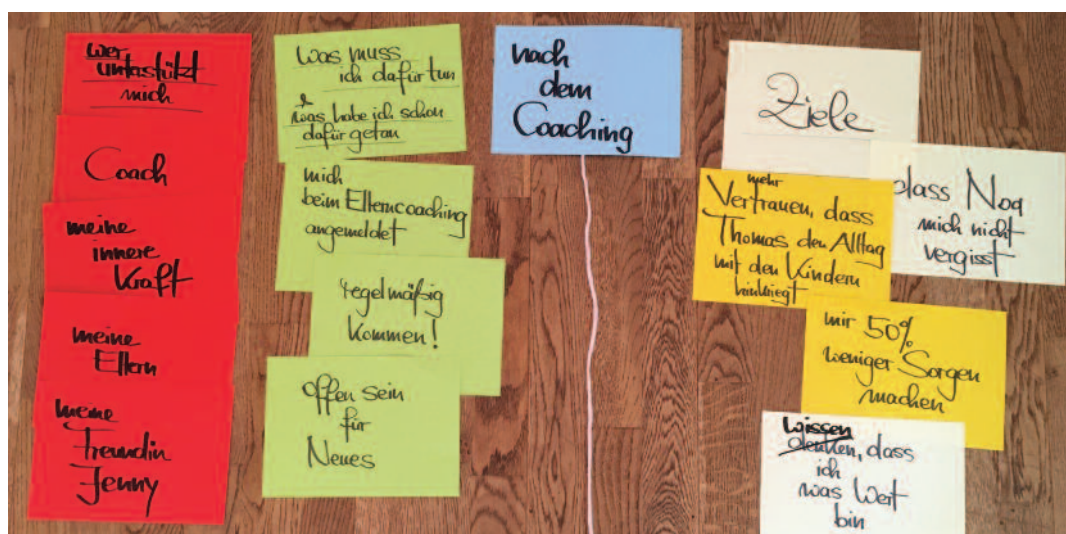 wer
unterstützt
mich
Coach
meine
innere
Kraft
meine
Eltern
meine
Freundin
Jenny
Was muss
ich dafür tun
&
was habe ich schon
dafür getan
mich
beim Elterncoaching
angemeldet
regelmäßig
kommen!
offen sein
für
Neues
nach
dem
Coaching
Ziele
dass Noa
mich nicht
vergisst
mehr
Vertrauen, dass
Thomas den Alltag
mit den Kindern
hinkriegt
mir 50%
weniger Sorgen
machen
wissen
denken, dass
ich
was Wert
bin